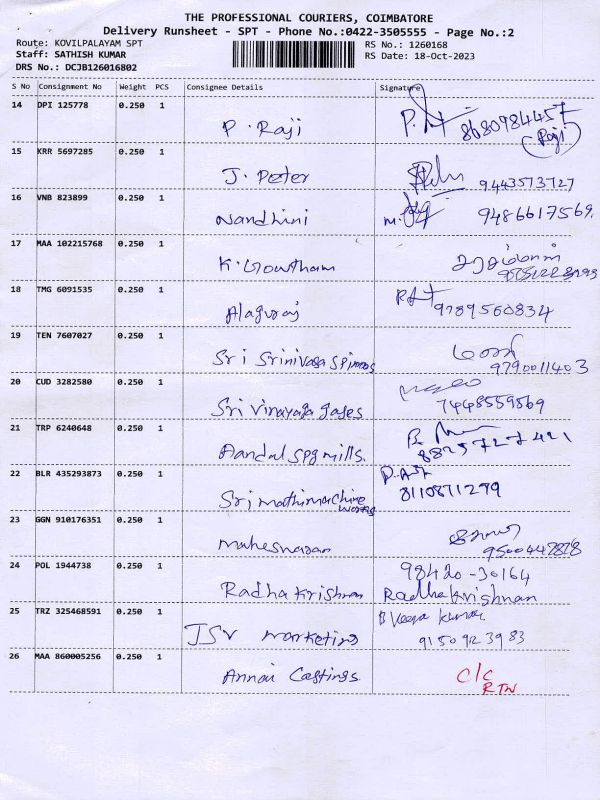 THE PROFESSIONAL COURIERS, COIMBATORE
Delivery Runsheet - SPT - Phone No.:0422-3505555 - Page No.:2
Route: KOVILPALAYAM SPT
RS No.: 1260168
Staff: SATHISH KUMAR
RS Date: 18-Oct-2023
DRS No.: DCJB126016802
S No Consignment No Weight PCS Consignee Details Signature
14 DPI 125778 0.250 1
P. Raji 8680984457
(Raji)
15 KRR 5697285 0.250 1
J. Peter 9443573727
16 VNB 823899 0.250 1
Nandhini 9486617569.
17 MAA 102215768 0.250 1
K. Gowtham
18 TMG 6091535 0.250 1
Alaguraj 9789560834
19 TEN 7607027 0.250 1
Sri Srinivasa Spinnos 9790011403
20 CUD 3282580 0.250 1
Sri Vinayaga gases 7448559869
21 TRP 6240648 0.250 1
Aandal spg mills. 8825727421
22 BLR 435293873 0.250 1
Sri mathi machine works 8110871299
23 GGN 910176351 0.250 1
Maheswaran 9500442828
24 POL 1944738 0.250 1
98420-30164
Radha Krishnan Radha Krishnan
25 TRZ 325468591 0.250 1
JSV Marketing 9150923983
26 MAA 860005256 0.250 1
Annai Castings. C/C
RTN